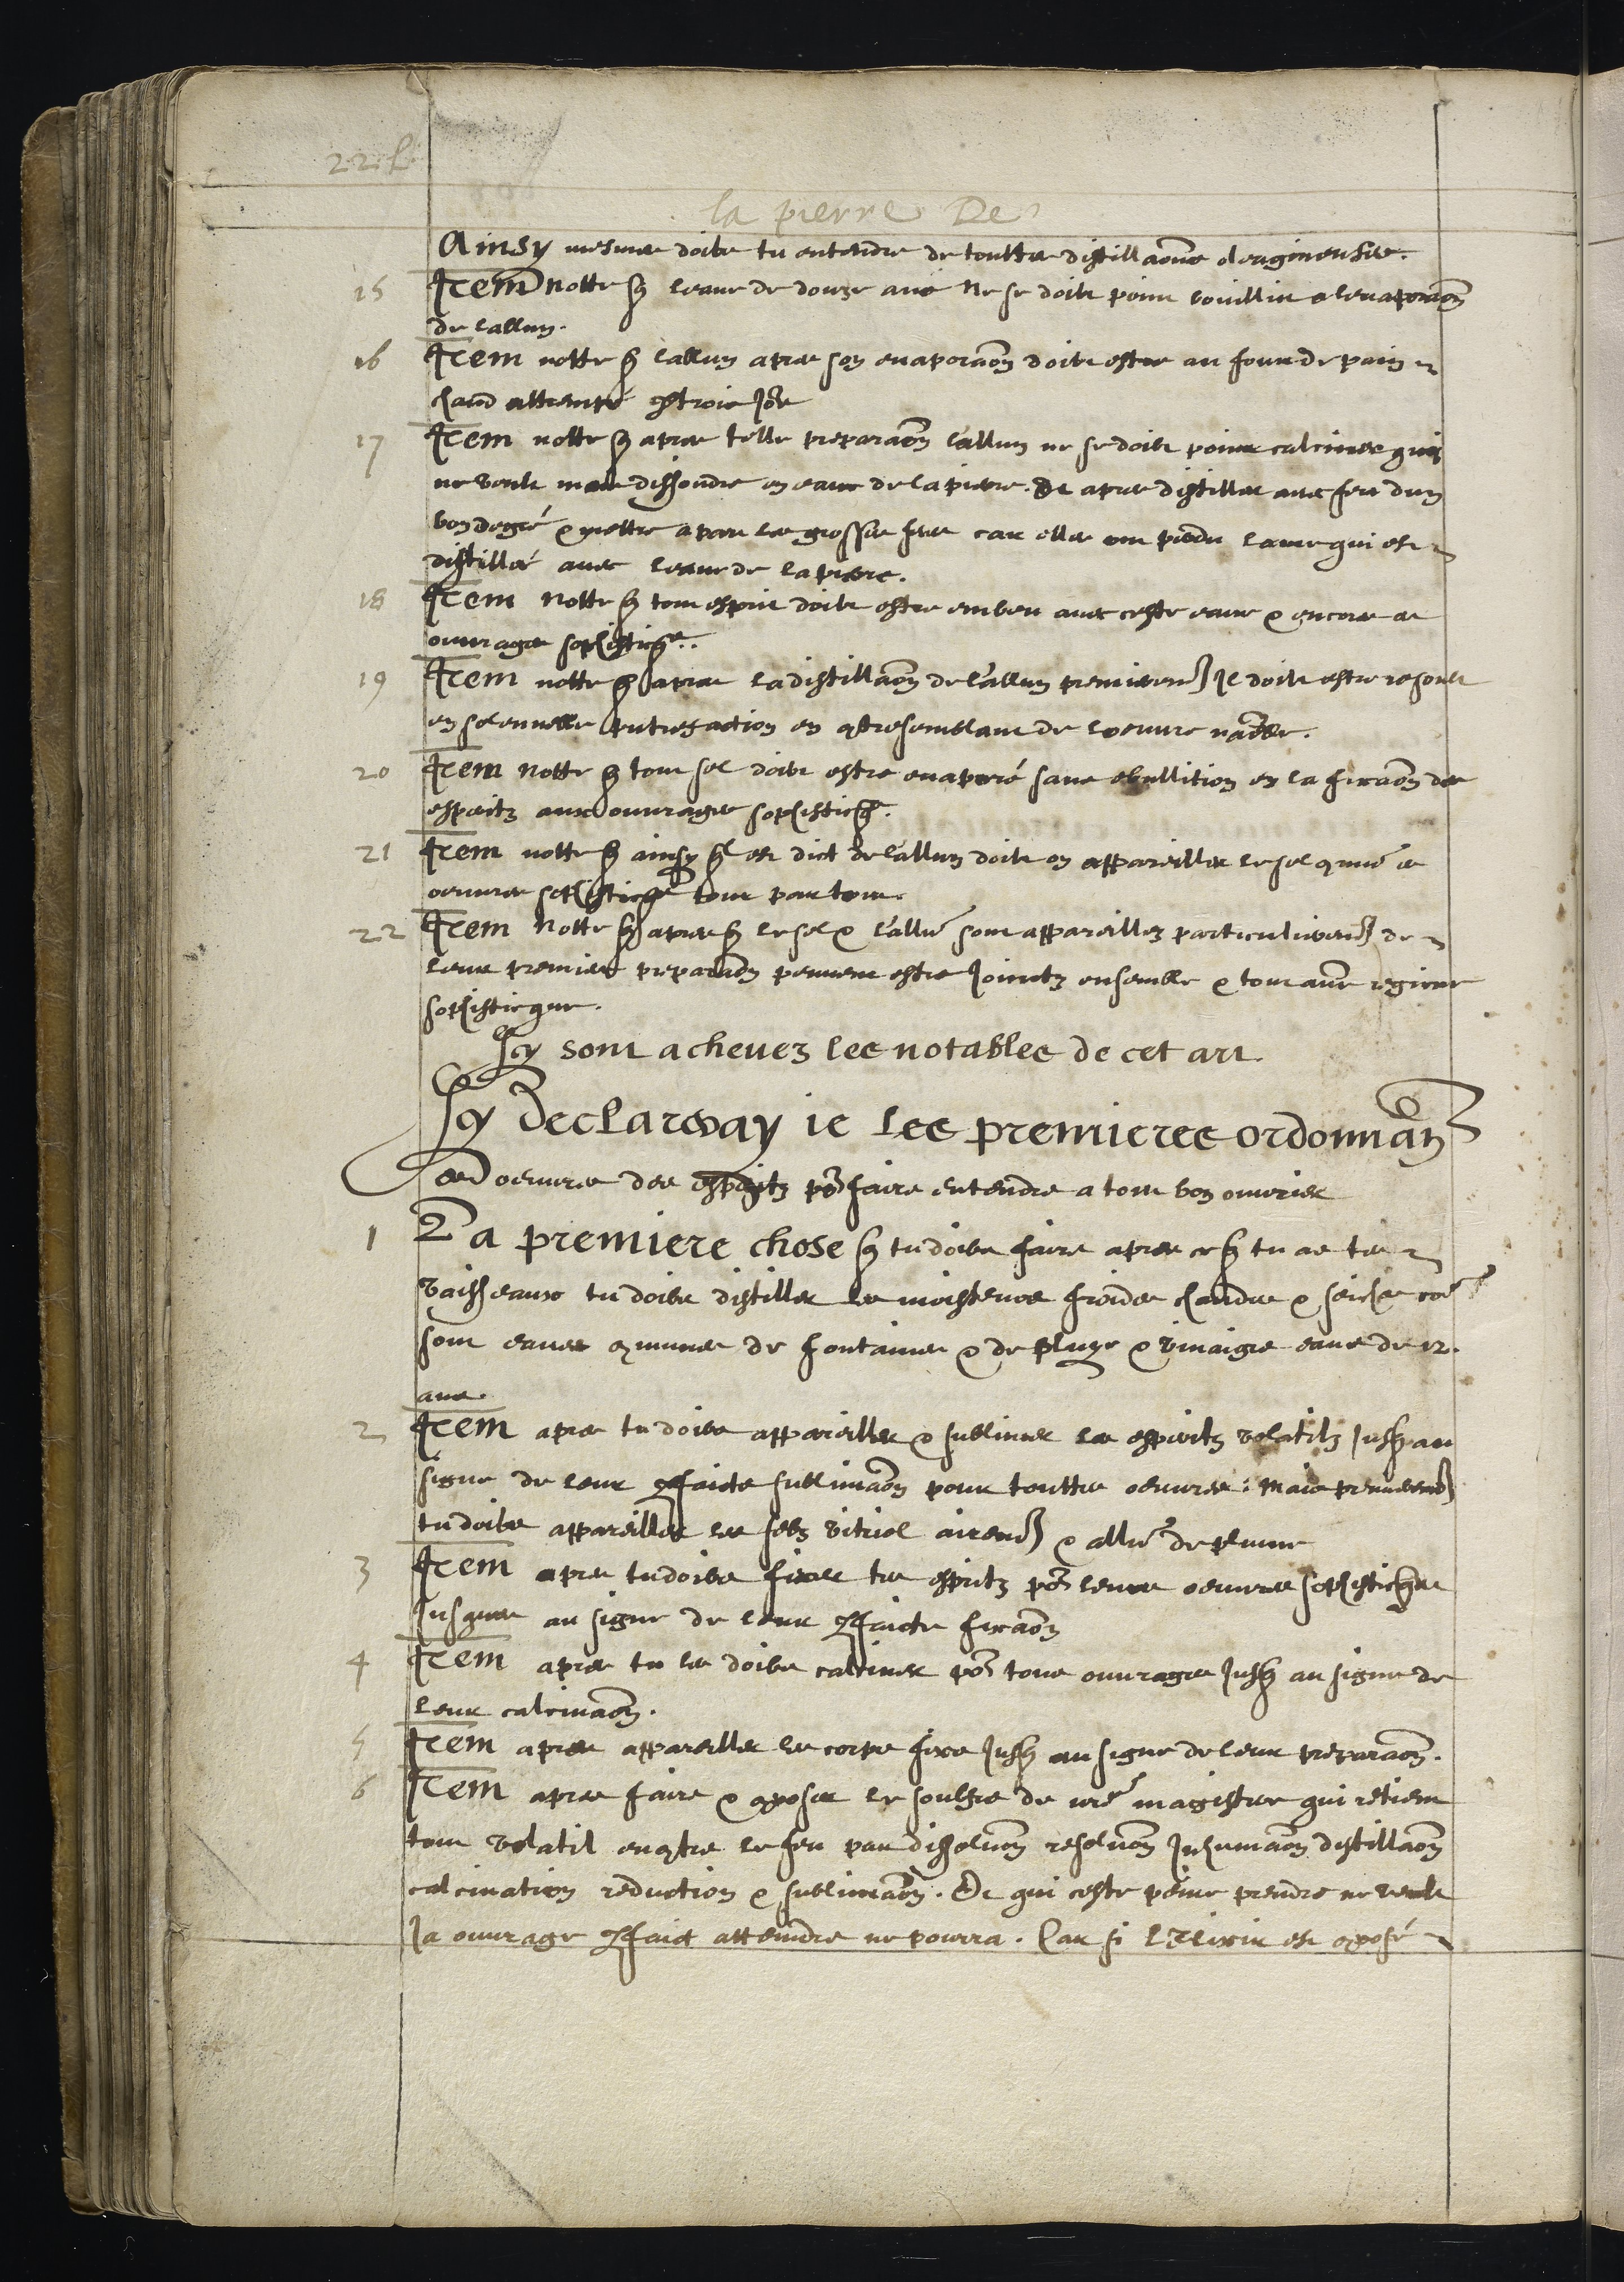 22
la pierre De
Ainsy mesmes doibs tu entendre de touttes distillaons
15 Item Notte q leaue de douze ans Ne se doibt point bouillir a levaporaon
de lallun.
16 Item notte q lallun apres son evaporaon doibt estre au four de pain
chaud attrempé trois Jors
17 Item notte q apres telle preparaon lallun ne se doibt point calciner qui
ne veult dissoudre en eaue de la pierre. Et apres distiller avec feu dun
bon degré & mettre a part les grosses car elles ont perdu leaue qui est
distillée avec leaue de la pierre.
18 Item Notte q tout esprit doibt estre embeu avec ceste eaue & encore es
ouvrages sophisticqs.
19 Item notte q apres la distillaon de lallun premierem Il doibt estre resoult
en solennelle putrefaction en semblant de loeuvre
20 Item Notte q tout sel doibt estre evaporé sans ebullition en la fixaon des
espritz aux ouvrages sophisticqs.
21 Item notte q ainsy ql est dict de lallun doibt on appareiller le sel 9mun es
oeuvres sophisticqs tout par tout.
22 Item Notte q apres q le sel & lallun sont appareillez particulierem de
leurs premiers preparaon peuvent estre Joinctz ensemble & tout aure regime
sophisticque.
Icy sont achevez les notables de cet art.
Icy Declareray ie les premieres ordonnan
es oeuvres des espritz por faire entendre a tout bon ouvrier
1 La premiere chose q tu doibs faire apres ce q tu as tes
vaisseaux tu doibs distiller les moisteurs froides chaudes & seiches coe
sont eaues 9munes de fontaines & de pluye & vinaigre eaue de 12.
ans.
2 Item apres tu doibs appareiller & sublimer les espritz volatilz Jusq au
signe de leur pfaicte sublimaon pour touttes oeuvres: Mais premierem
tu doibs appareiller les selz vitriol & allun de plume
3 Item apres tu doibs fixer tes espritz por leurs oeuvres sophisticqs
Jusques au signe de leur pfaicte fixaon
4 Item apres tu les doibs calciner por tous ouvrages Jusq au signe de
leur calcinaon.
5 Item apres appareiller les corps fixes Jusq au signe de leur preparaon.
6 Item apres faire & 9poser le soulfre de nre magistere qui retient
tout volatil en9tre le feu par dissoluon resoluon Inhumaon distillaon
calcination reduction & sublimaon. Et qui ceste peine prendre ne veult
Ja ouvrage pfaict attendre ne pourra. Car si lElixir est 9posé